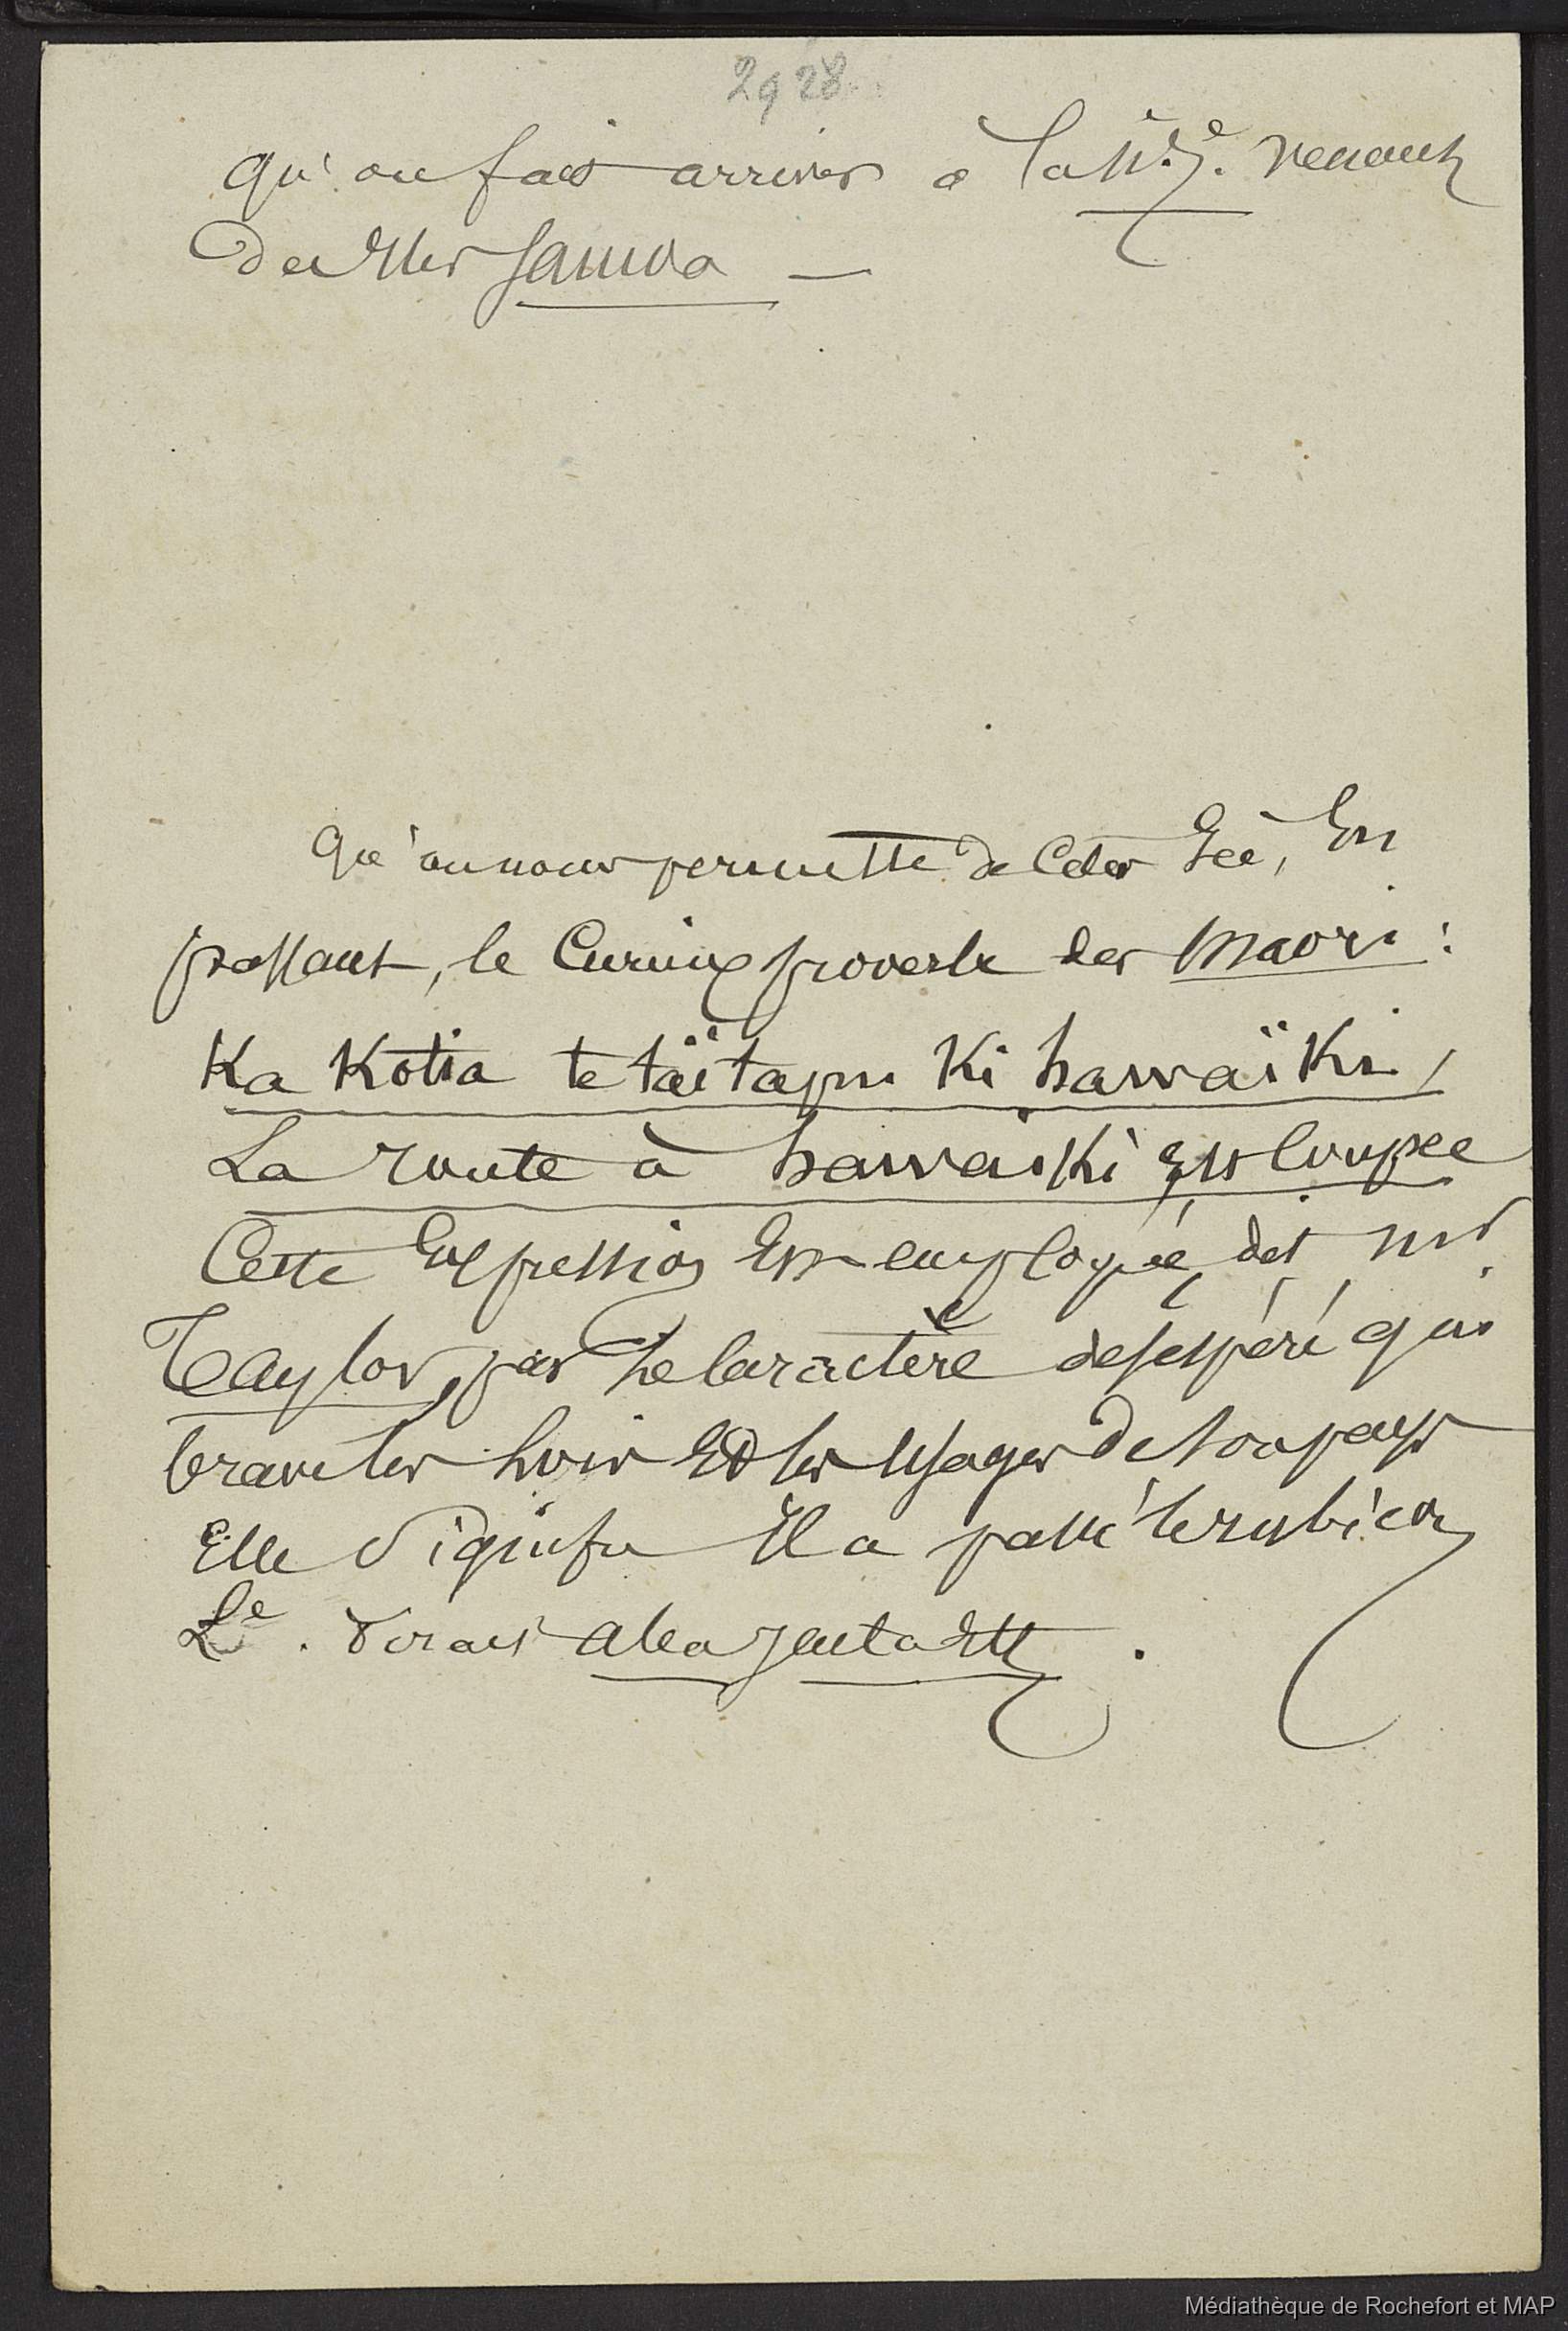 2928
qu'on fait arriver à la N.Z. venant
des Iles Samoa —
Qu'on nous permette de citer ici, En
passant, le Curieux proverbe des Maori :
Ka Kotia te taï tapu Ki hawaïKi,
La route à hawaiKi Est Coupée
Cette Expression Est employée, dit Mr
Taylor, par le Caractère désespéré qui
brave les lois Et les Usages de son pays
Elle Signifie Il a passé le rubicon
Le
alea jacta Est.
Médiathèque de Rochefort et MAP